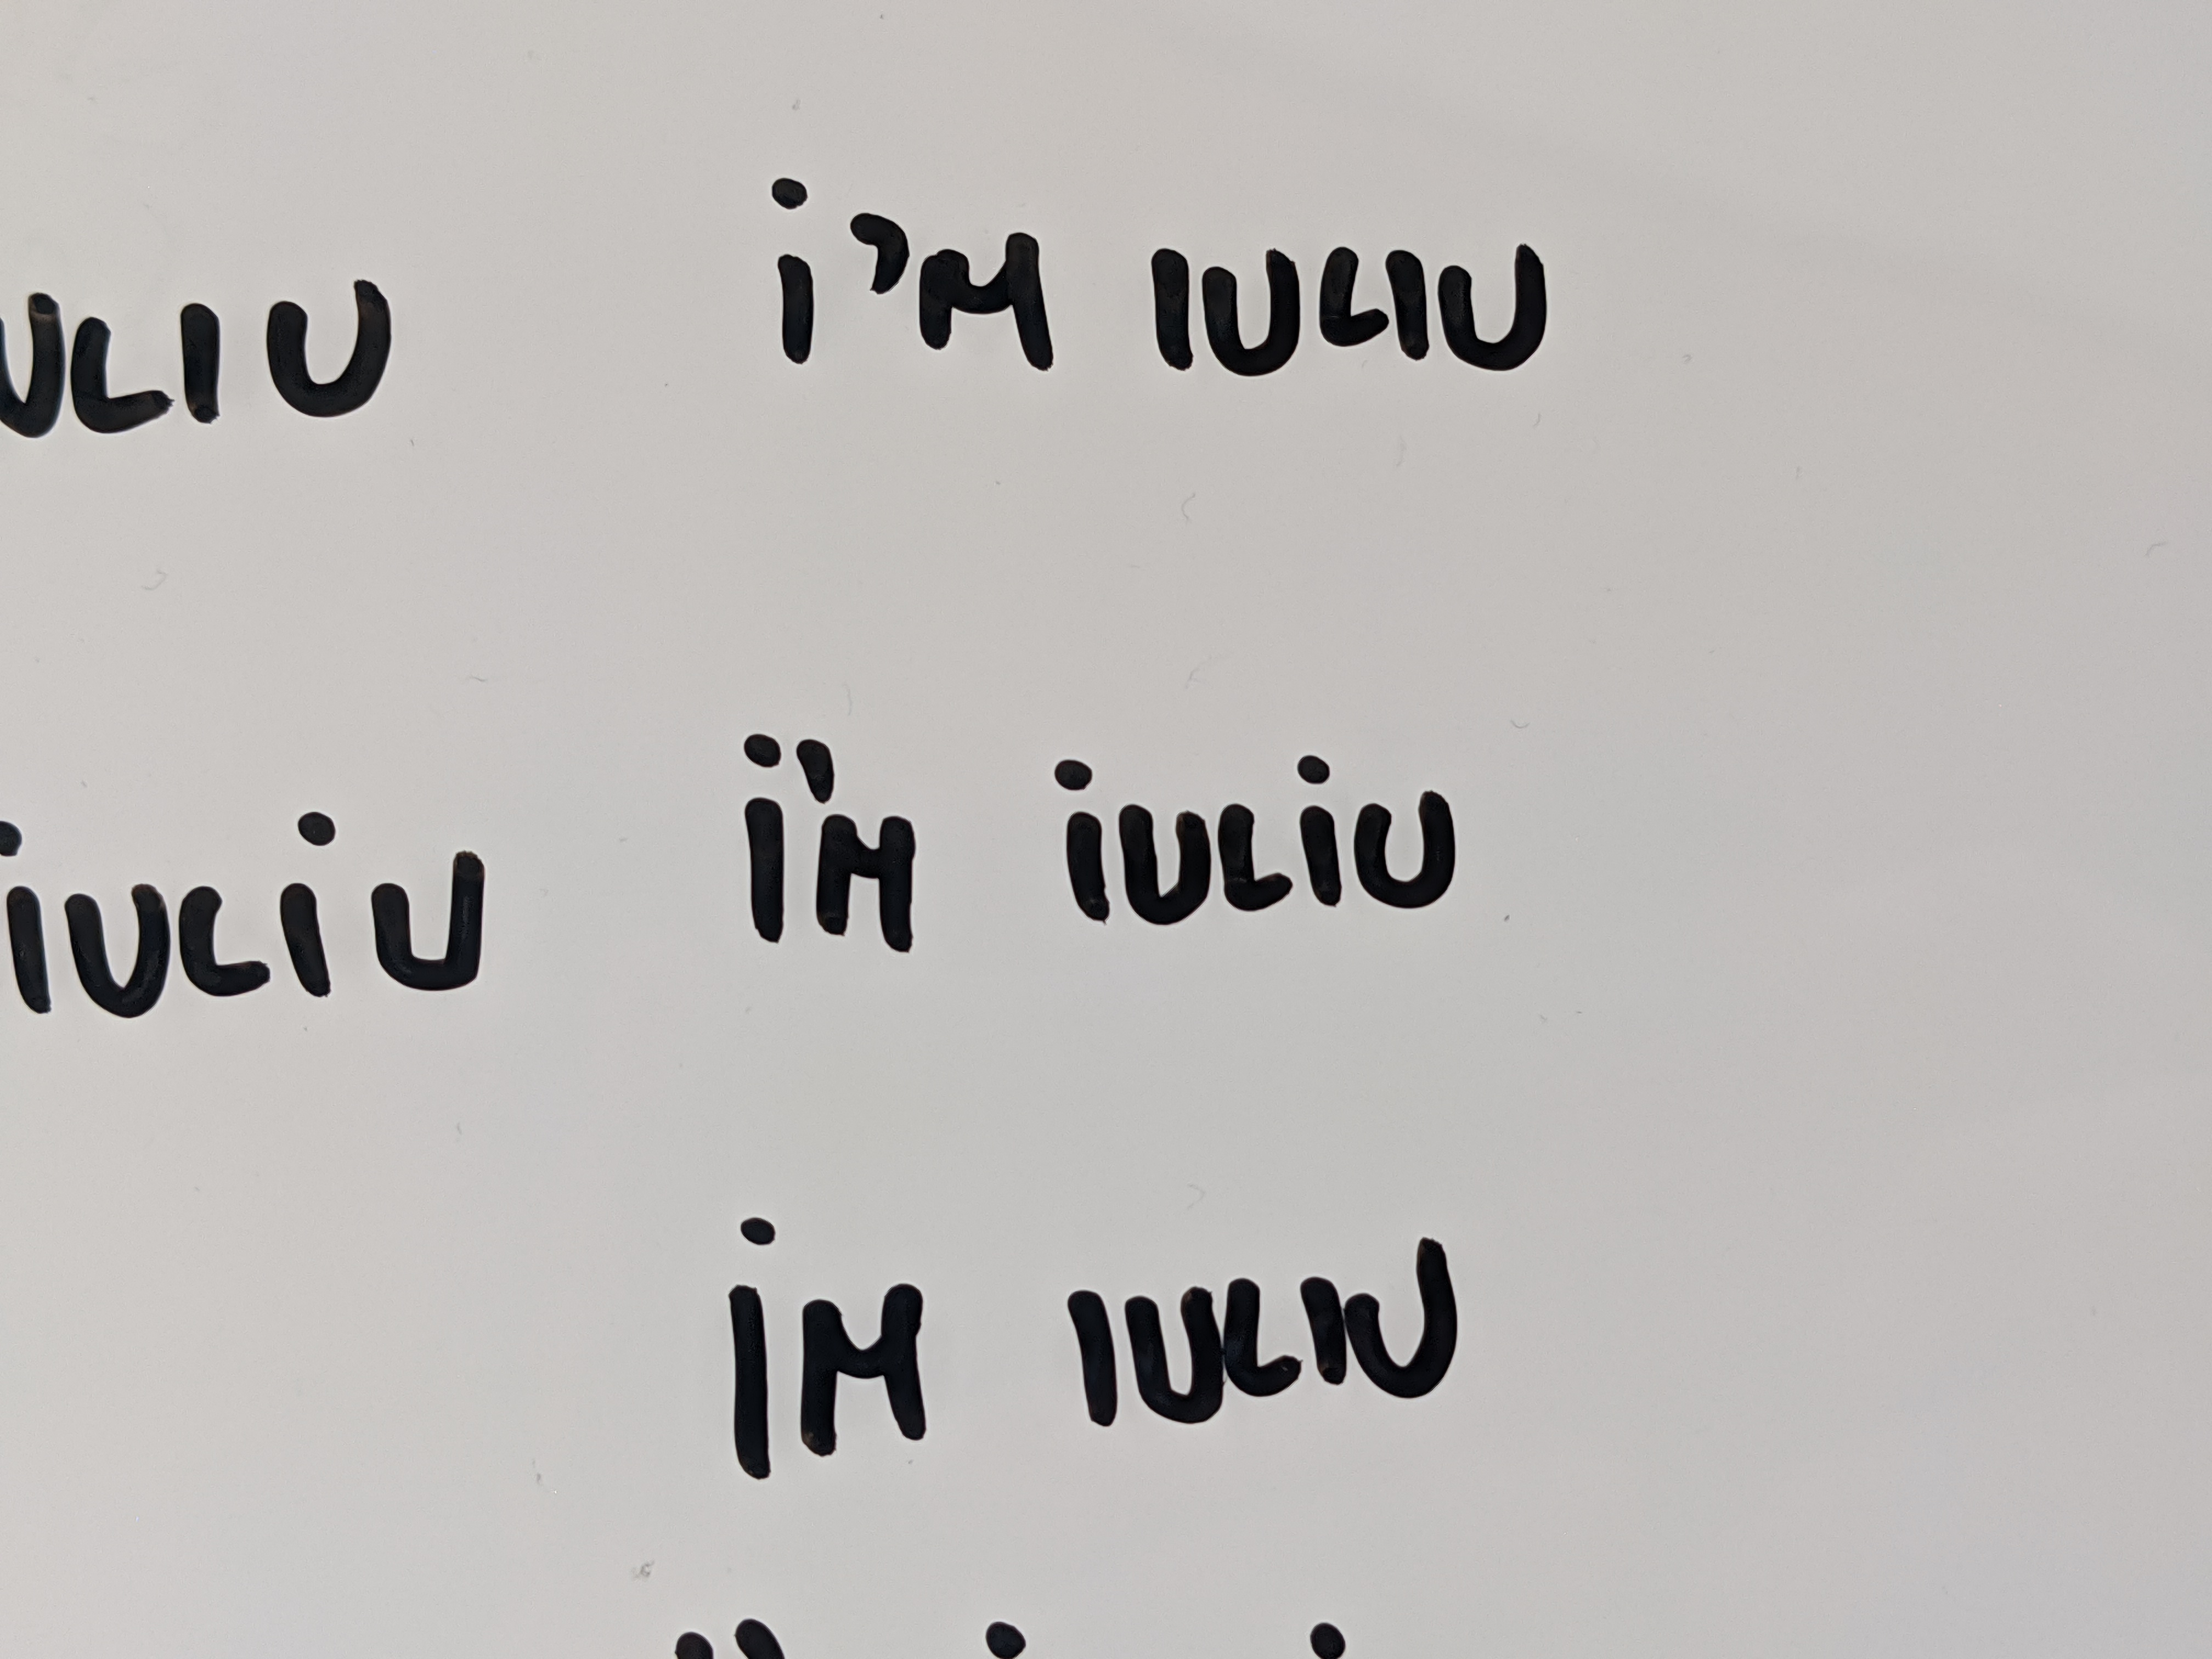 i'M IULIU
iULiU i'M iULiU
iM IULIU